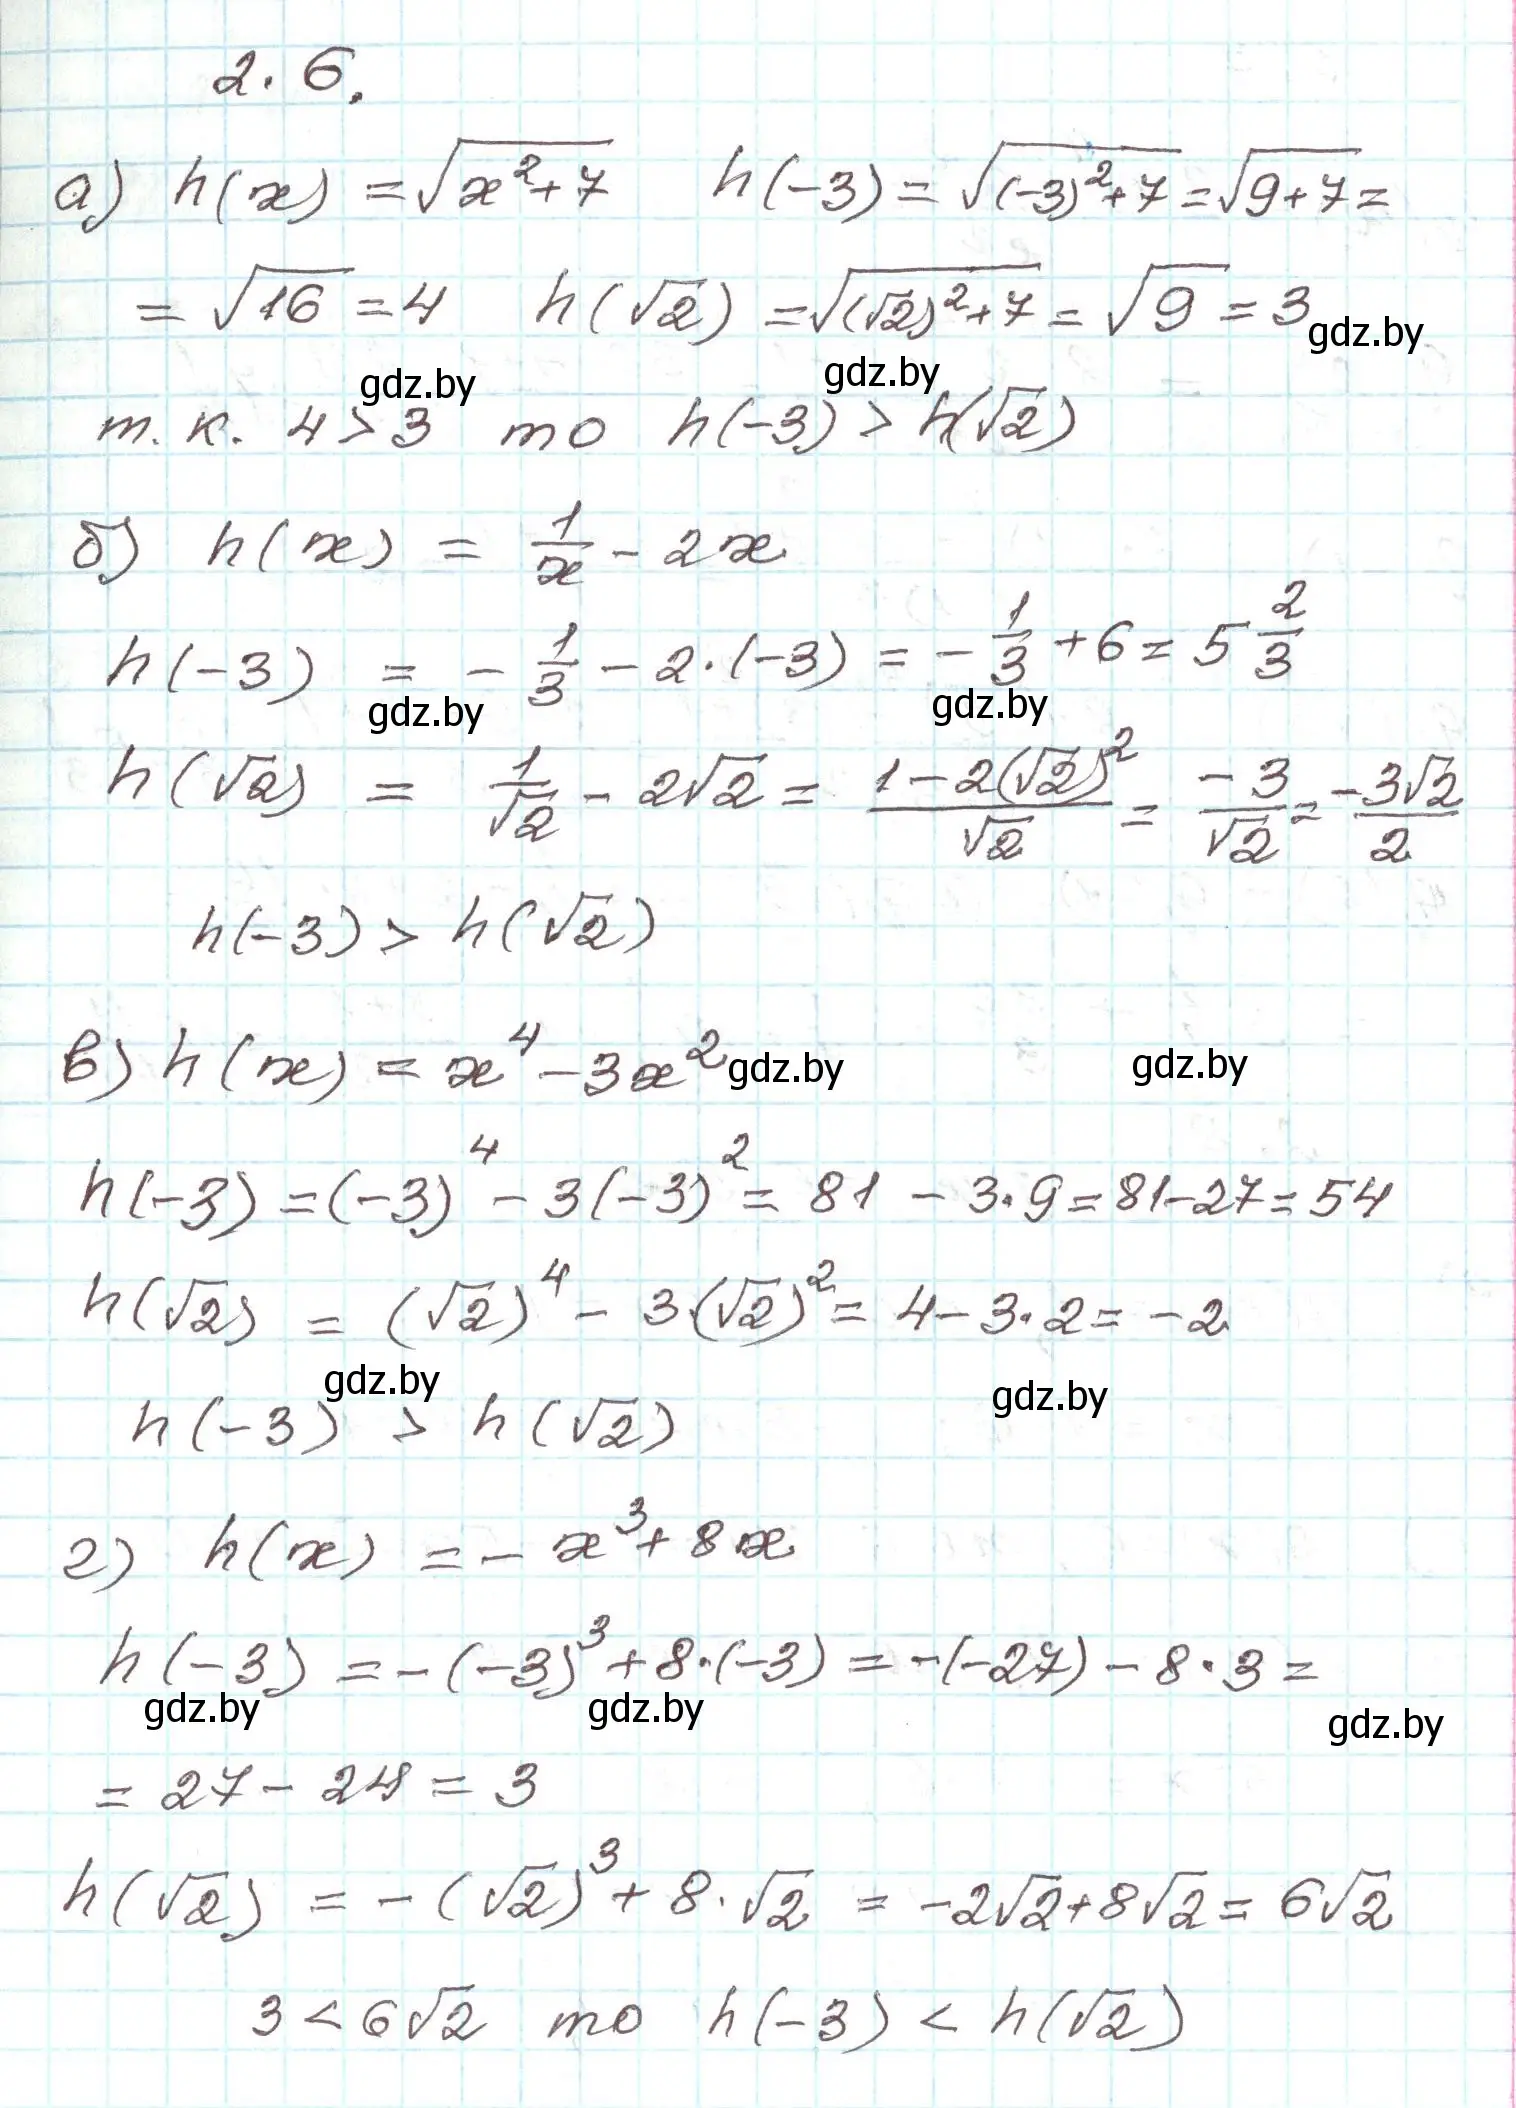 2.6.
а) h(x) = √(x²+7)   h(-3) = √((-3)²+7) = √(9+7) =
= √16 = 4   h(√2) = √((√2)²+7) = √9 = 3
gdz.by
gdz.by
gdz.by
т.к. 4 > 3 то h(-3) > h(√2)
б) h(x) = 1/x - 2x
h(-3) = - 1/3 - 2·(-3) = - 1/3 + 6 = 5 2/3
gdz.by
gdz.by
h(√2) = 1/√2 - 2√2 = (1-2(√2)²)/√2 = -3/√2 = -3√2/2
h(-3) > h(√2)
в) h(x) = x⁴ - 3x²
gdz.by
gdz.by
h(-3) = (-3)⁴ - 3(-3)² = 81 - 3·9 = 81-27 = 54
h(√2) = (√2)⁴ - 3·(√2)² = 4-3·2 = -2
gdz.by
gdz.by
h(-3) > h(√2)
г) h(x) = - x³ + 8x
h(-3) = -(-3)³ + 8·(-3) = -(-27) - 8·3 =
gdz.by
gdz.by
gdz.by
= 27 - 24 = 3
h(√2) = -(√2)³ + 8·√2 = -2√2+8√2 = 6√2
3 < 6√2 то h(-3) < h(√2)